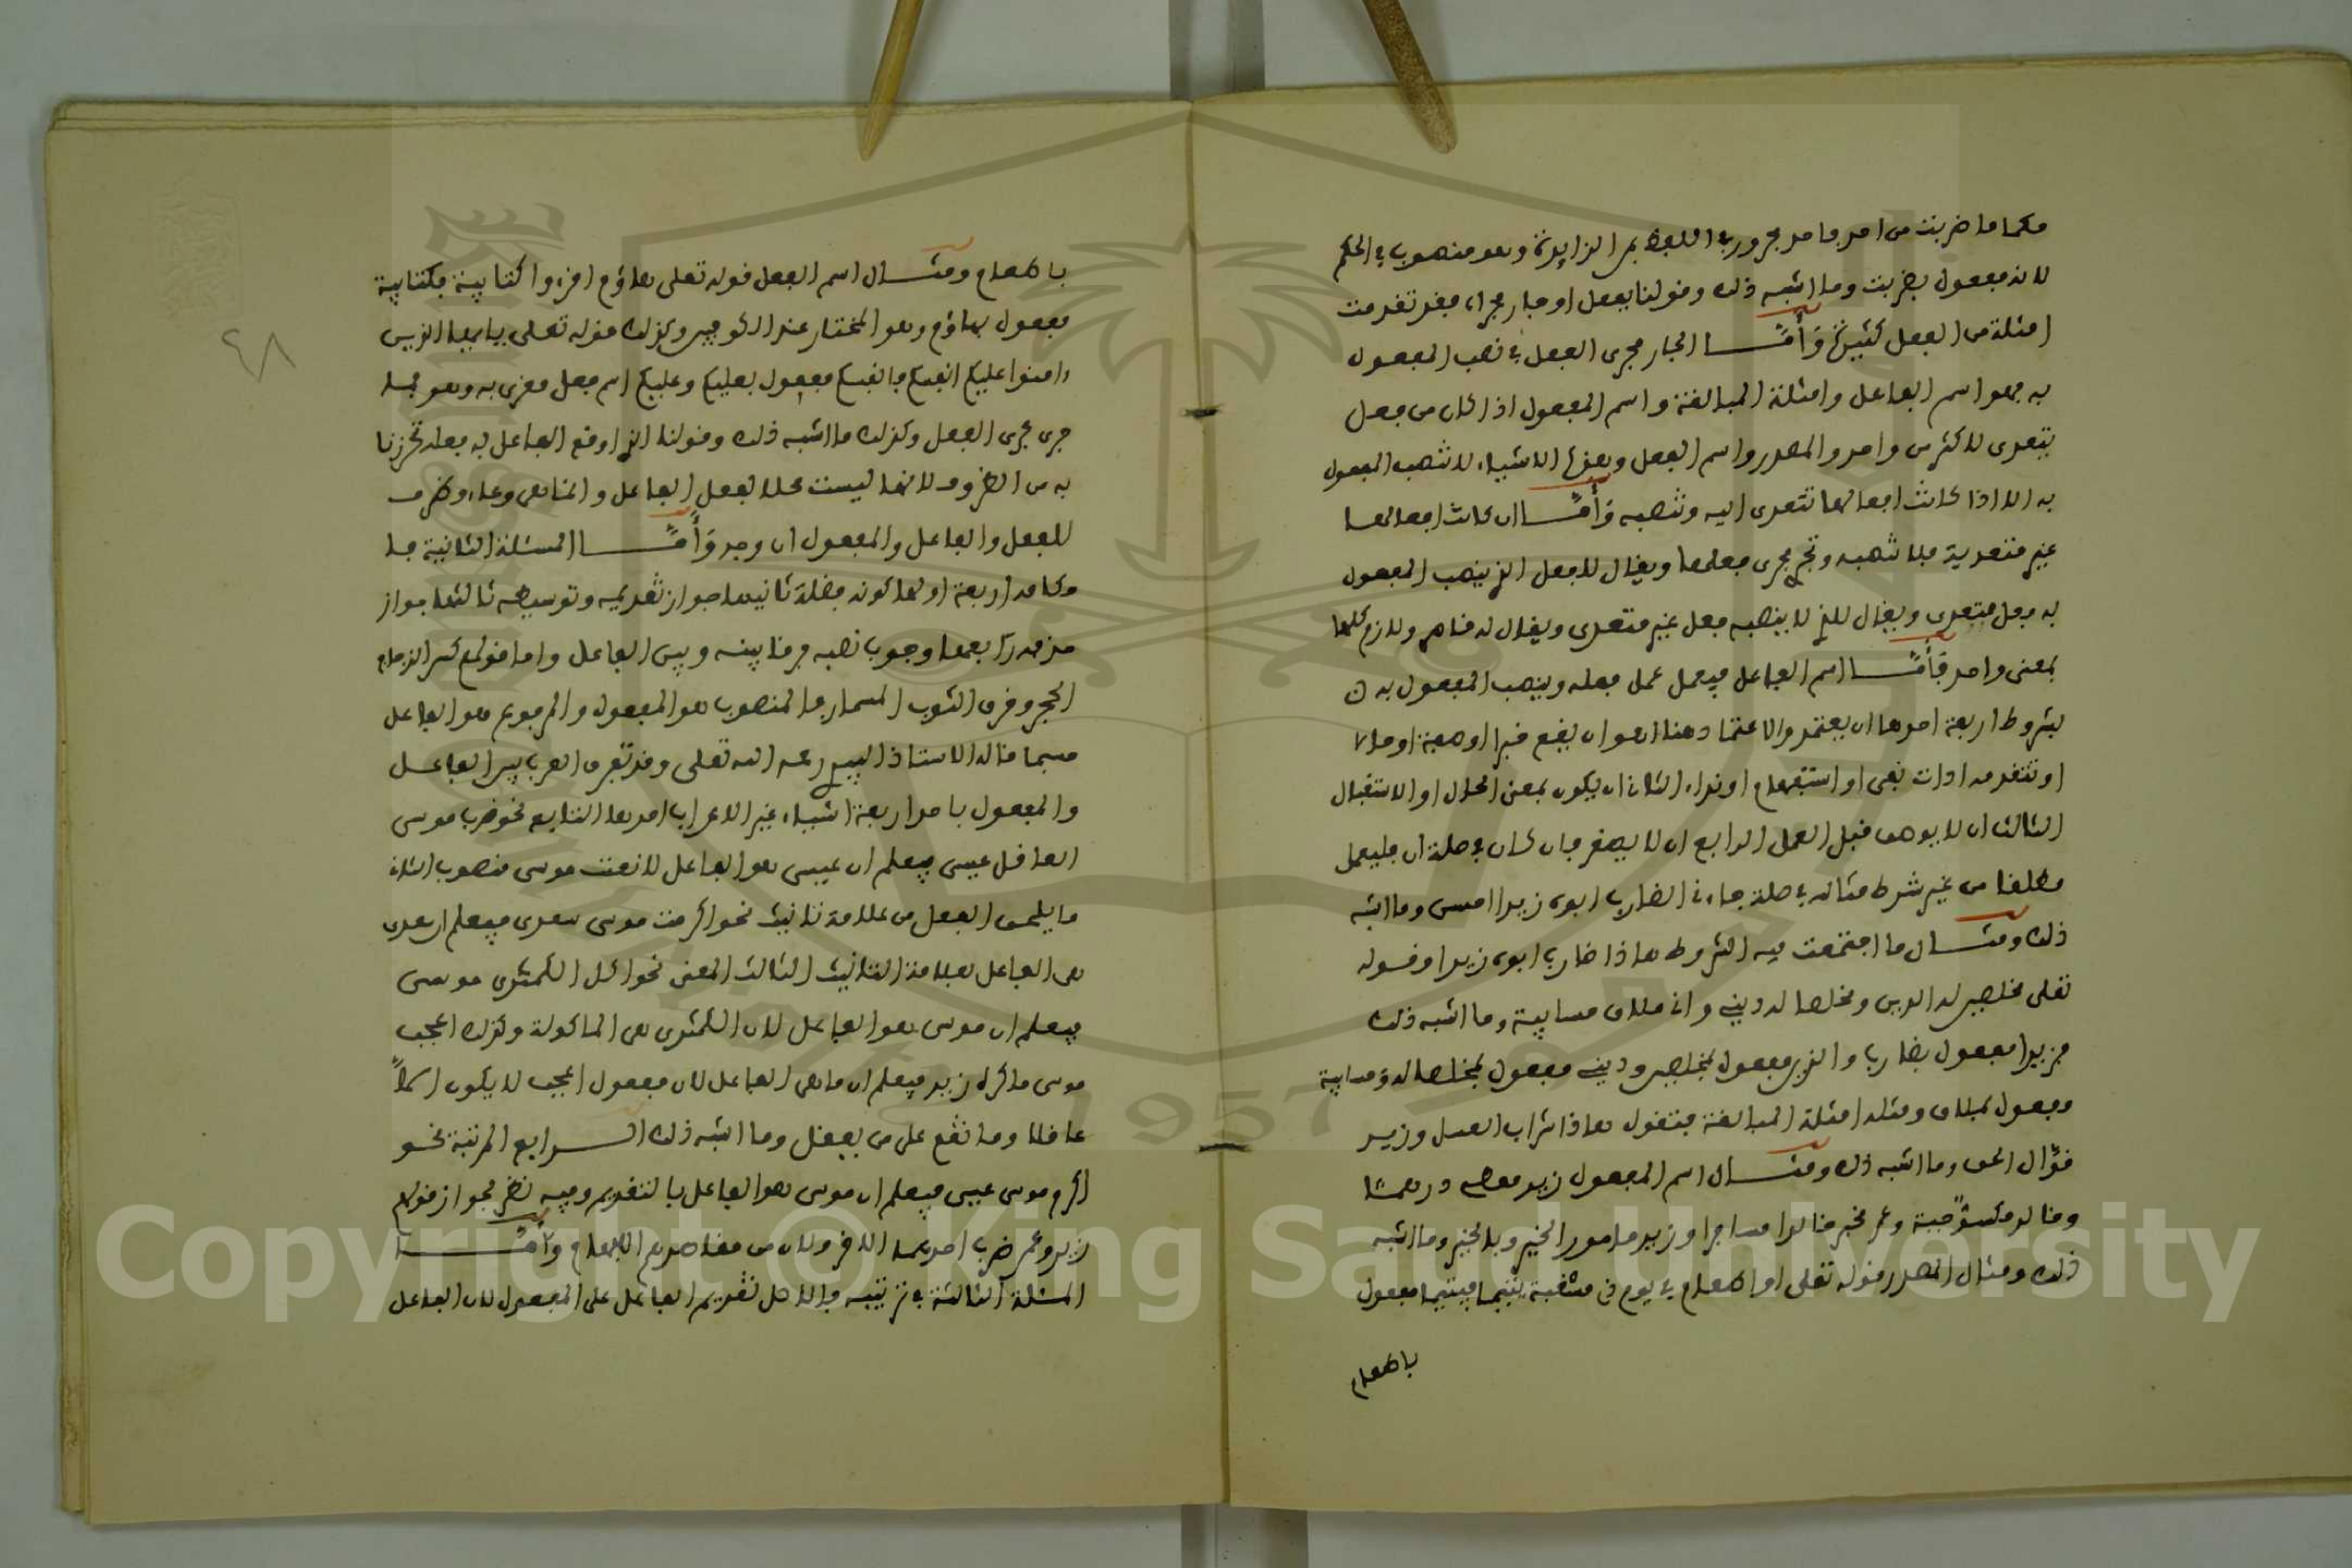 حكما ما ضربت من احد فاحد مجرور في اللفظ بمن الزايدة وهو منصوب في الحكم
لانه مفعول بضربت وما اشبه ذلك وقولنا بفعل او جار مجراه فقد تقدمت
امثلة من الفعل كثيرة وأمّا الجار مجرى الفعل في نصب المفعول
به فهو اسم الفاعل وامثلة المبالغة واسم المفعول اذا كان من فعل
يتعدى لاكثر من واحد والمصدر واسم الفعل وهذه الاشياء لا تنصب المفعول
به الا اذا كانت افعالها تتعدى اليه وتنصبه وأمّا ان كانت افعالها
غير متعدية فلا تنصبه وتجري مجرى فعلها ويقال للفعل الذي ينصب المفعول
به فعل متعدى ويقال للذي لا ينصبه فعل غير متعدى ويقال له قاصر ولازم كلها
بمعنى واحد فأمّا اسم الفاعل فيعمل عمل فعله وينصب المفعول به
بشروط اربعة احدها ان يعتمد والاعتماد هنا هو ان يقع خبرا او صفة او حالا
او تتقدمه ادات نفى او استفهام او نداء الثاني ان يكون بمعنى الحال او الاستقبال
الثالث ان لا يوصف قبل العمل الرابع ان لا يصغر فان كان في صلة ال فليعمل
مطلقا من غير شرط مثاله في صلة جاءني الضارب ابوه زيدا امس وما اشبه
ذلك ومثال ما اجتمعت فيه الشروط هاذا ضارب ابوه زيدا وقوله
تعلى مخلصين له الدين ومخلصا له ديني واني ملاق حسابية وما اشبه ذلك
فزيدا مفعول بضاربا والدين مفعول بمخلصين وديني مفعول بمخلصا له وحسابية
مفعول بملاق ومثله امثلة المبالغة فتقول هاذا شراب العسل وزيد
قوّال الحق وما اشبه ذلك ومثال اسم المفعول زيد معطى درهما
وخالد مكسوّ جبة وعمر مخبر خالدا مسافرا وزيد مامور الخير وبالخير وما اشبه
ذلك ومثال المصدر قوله تعلى او اطعام في يوم ذي مسغبة يتيما فيتيما مفعول
باطعام
باطعام ومثال اسم الفعل قوله تعلى هاؤم اقرءوا كتابية فكتابية
مفعول بهاؤم وهو المختار عند الكوفيين وكذلك قوله تعلى يا ايها الذين
ءامنوا عليكم انفسكم فانفسكم مفعول بعليكم وعليكم اسم فعل مغرى به وهو مما
جرى مجرى الفعل وكذلك ما اشبه ذلك وقولنا الذي اوقع الفاعل به فعله تحرزنا
به من الظروف لانها ليست محلا لفعل الفاعل وانما هي وعاء وظرف
للفعل والفاعل والمفعول ان وجد وأمّا المسئلة الثانية فا
حكامه اربعة اولها كونه فضلة ثانيها جواز تقديمه وتوسيطه ثالثها جواز
حذفه رابعها وجوب نصبه فرقا بينه وبين الفاعل واما قولهم كسر الزجاج
الحجر وخرق الثوب المسمار فالمنصوب هو المفعول والمرفوع هو الفاعل
حسبما قاله الاستاذ رحمه الله تعلى وقد تفرق العرب بين الفاعل
والمفعول باحد اربعة اشياء غير الاعراب احدها التابع نحو ضرب موسى
العاقل عيسى فيعلم ان عيسى هو الفاعل لان نعت موسى منصوب الثاني
ما يلحق الفعل من علامة تانيث نحو اكرمت موسى سعدى فيعلم ان سعدى
هى الفاعل بعلامة التانيث الثالث المعنى نحو اكل الكمثرى موسى
فيعلم ان موسى هو الفاعل لان الكمثرى هى الماكولة وكذلك اعجب
موسى ما كره زيد فيعلم ان ما هى الفاعل لان مفعول اعجب لا يكون الا
عاقلا وما تقع على من يعقل وما اشبه ذلك الرابع المرتبة نحو
اكرم موسى عيسى فيعلم ان موسى هو الفاعل بالتقديم وفيه نظر لجواز قولهم
زيد وعمر ضرب احدهما الاخر ولان من مقاصدهم الابهام وأمّا
المسئلة الثالثة في ترتيبه فالاصل تقديم الفاعل على المفعول لان الفاعل
٤٨
Copyright © King Saud University
1957